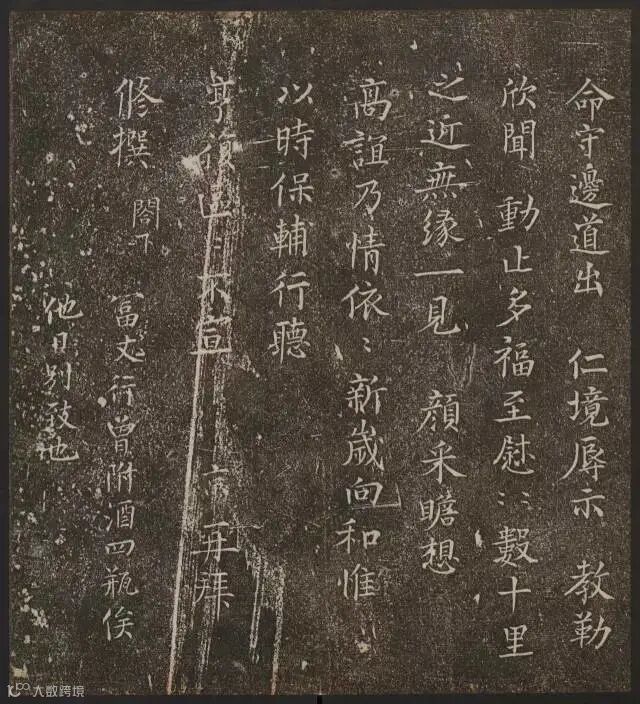 命守邊道出 仁境辱示 教勒
欣聞 動止多福至慰〻數十里
之近無緣一見 顏采瞻想
高誼乃情依〻新歲向和惟
以時保輔行聽
亨復區〻不宣 再拜
修撰 閤下 富丈行曾附酒四瓶俟
他日別致也
大数跨境